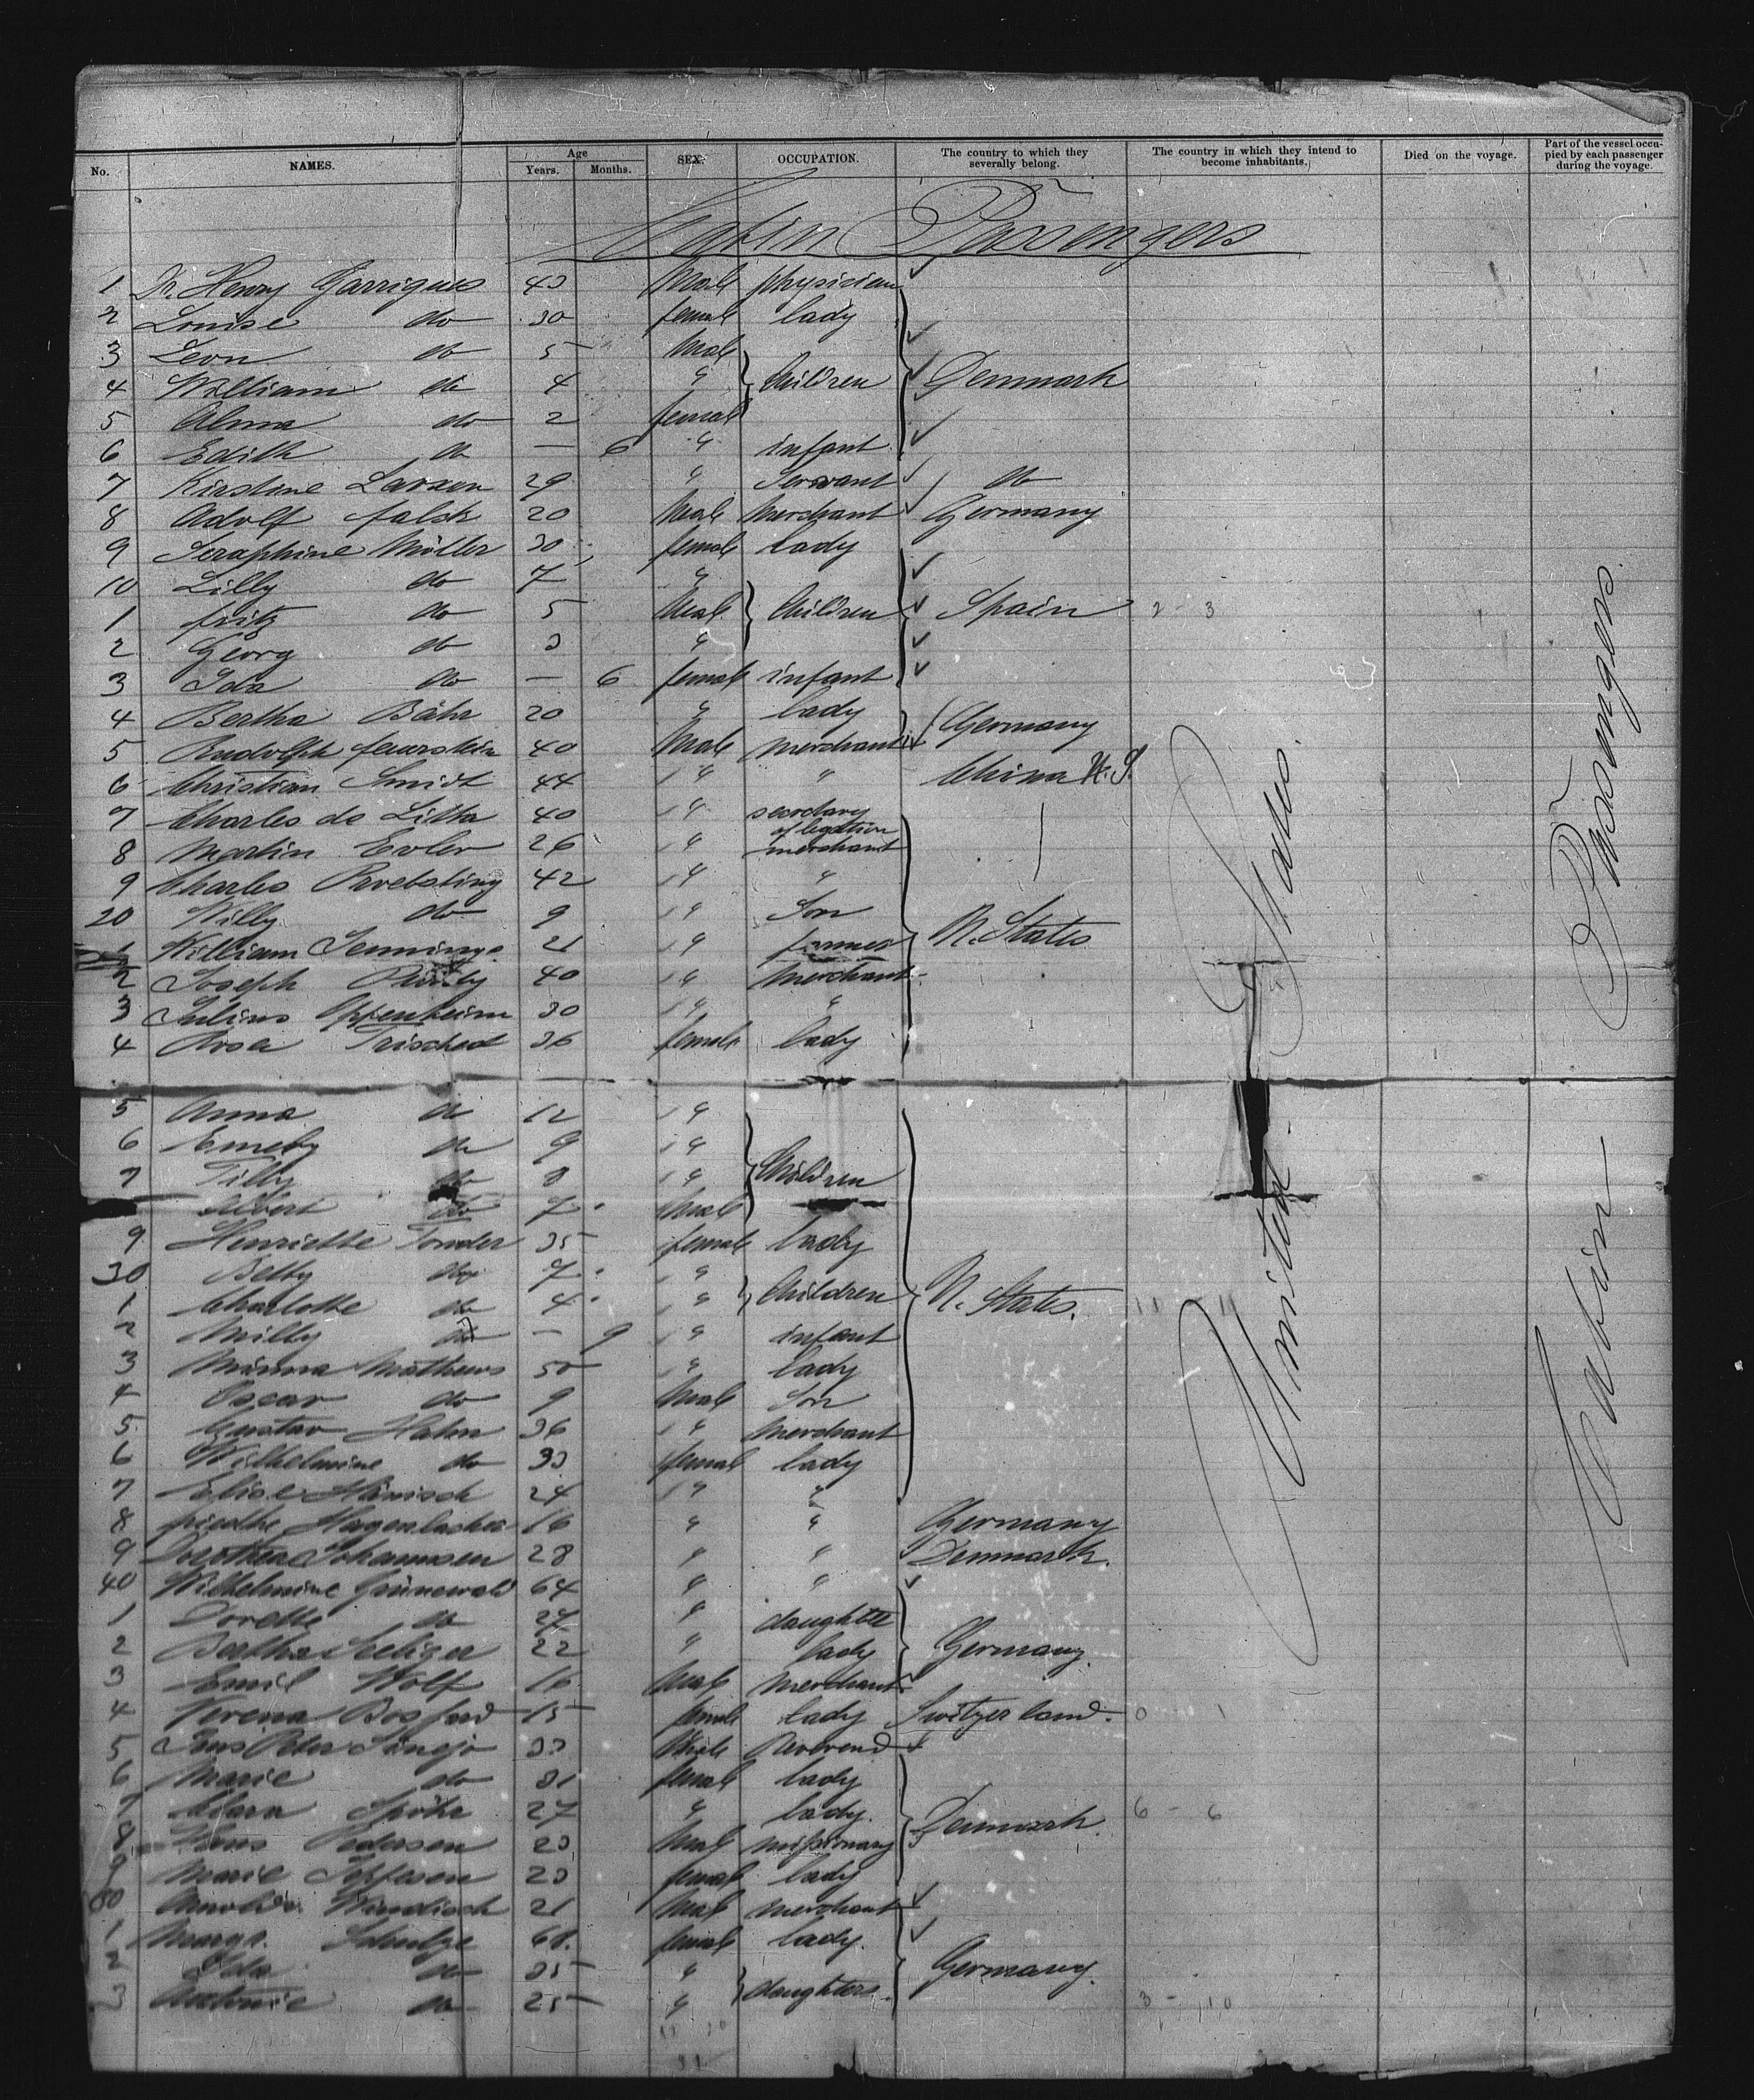 No. NAMES. Age Years. Months. SEX. OCCUPATION. The country to which they severally belong. The country in which they intend to become inhabitants. Died on the voyage. Part of the vessel occupied by each passenger during the voyage.
Cabin Passengers
1 Dr. Henry Garrigues 43 Male physician
2 Louise do 30 female lady
3 Leon do 5 Male
4 William do 4 " Children Denmark
5 Alma do 2 female
6 Edith do — 6 " infant
7 Kirstine Larsen 29 " Servant do
8 Adolf Falck 20 Male Merchant Germany
9 Seraphine Müller 30 female lady
10 Lilly do 7 "
1 Fritz do 5 Male Children Spain 2 - 3
2 Georg do 3 "
3 Ida do — 6 female infant
4 Bertha Bähr 20 " lady Germany
5 Rudolph Feuerstein 40 Male merchant
6 Christian Smidt 44 " " China
7 Charles de 40 " secretary of legation
8 Martin 26 " merchant
9 Charles 42 " "
20 Willy do 9 " Son U. States
1 William Jennings 21 " farmer
2 Joseph 40 " Merchant
3 Julius Oppenheim 30 " "
4 Rosa 36 female lady
5 Anna do 12 "
6 do 9 "
7 Tilly do 8 " Children
Albert do 7 Male
9 Henriette Tonder 35 female lady
30 Betty do 7 "
1 Charlotte do 4 " Children U. States. 11 - 11
2 Milly do — 9 " infant
3 Minna Mathews 50 " lady
4 Oscar do 9 Male Son
5 Gustav Hahn 36 " Merchant
6 Wilhelmine do 33 female lady
7 Elise 24 " "
8 16 " " Germany
9 Dorothea Johannsen 28 " " Denmark.
40 Wilhelmine Grünewald 64 " "
1 Dorette do 27 " daughter
2 Bertha Seliger 22 " lady Germany.
3 Emil Wolf 16 Male merchant
4 Verena 15 female lady Switzerland. 0 1
5 Jens Peter 33 Male Reverend
6 Marie do 31 female lady
7 Clara 27 " lady. Denmark. 6 - 6
8 Hans Pedersen 23 Male missionary
9 Marie 23 female lady
50 21 Male merchant
1 Margr. Schulze 68. female lady.
2 Ida do 35 " Germany.
3 Antonie do 25 " daughters. 3 - 10
31
United States.
Cabin Passengers.